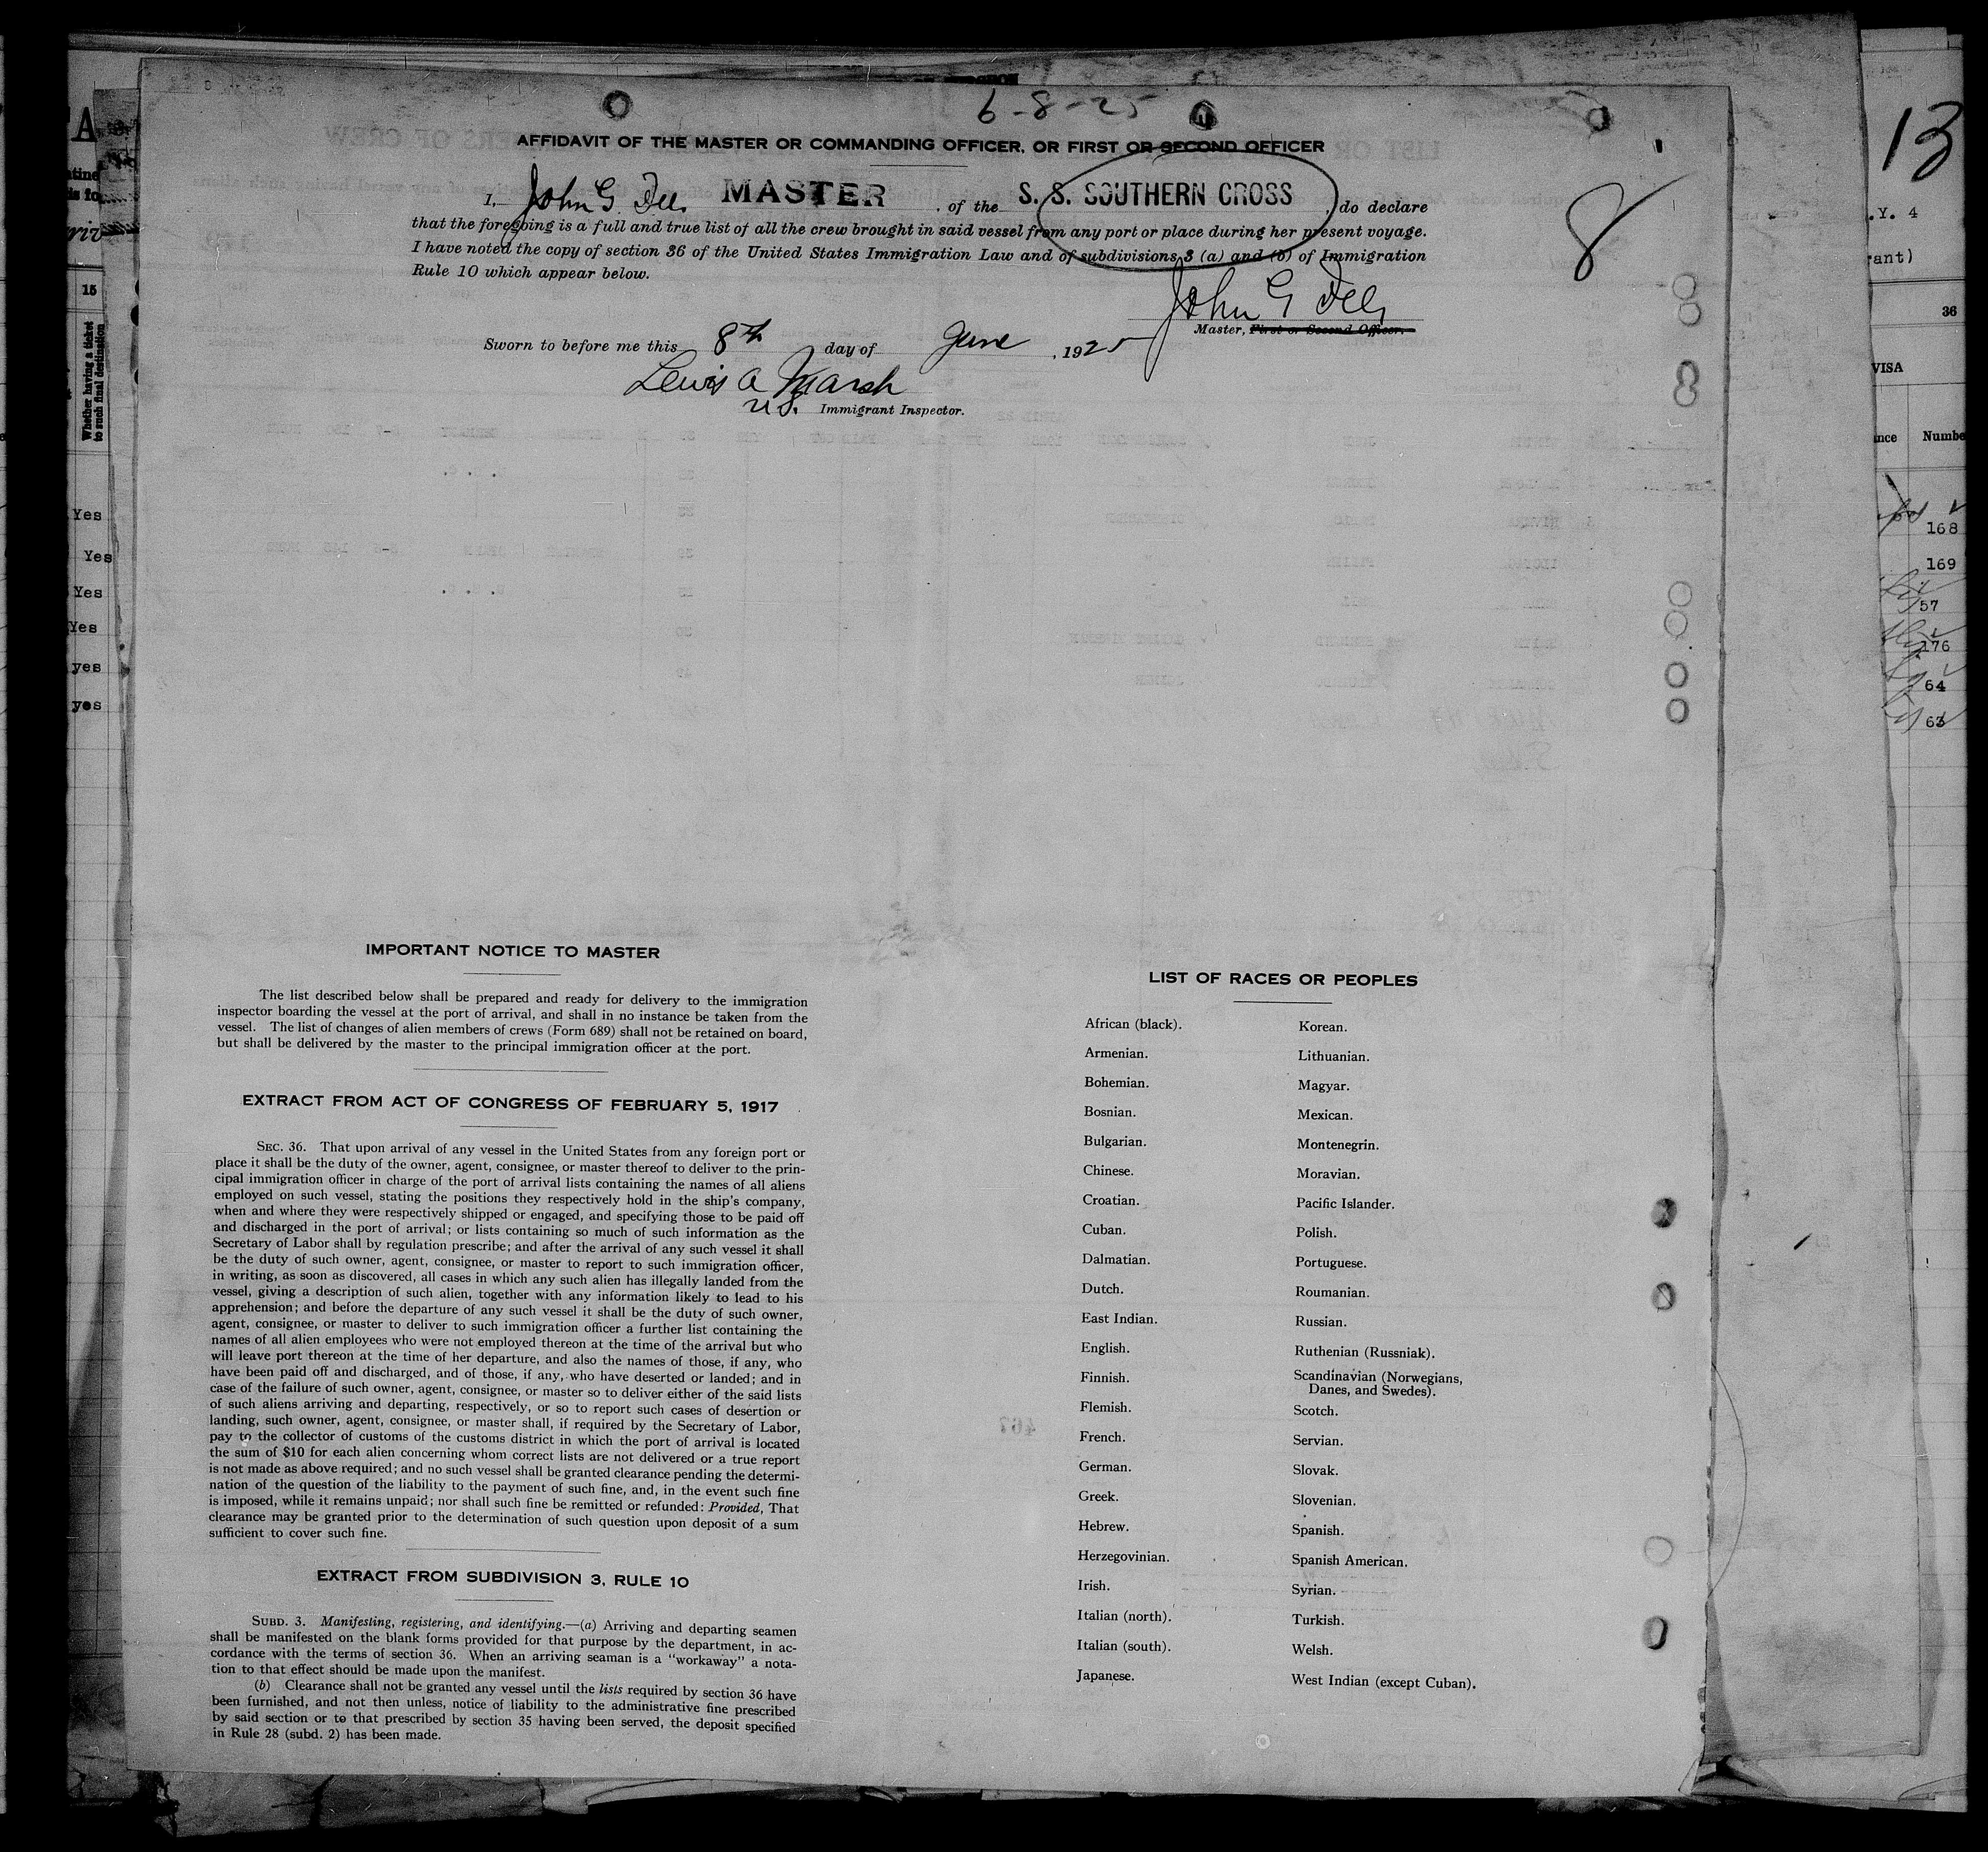 6-8-25
AFFIDAVIT OF THE MASTER OR COMMANDING OFFICER, OR FIRST OR SECOND OFFICER
I, John G. MASTER, of the S. S. SOUTHERN CROSS, do declare
that the foregoing is a full and true list of all the crew brought in said vessel from any port or place during her present voyage.
I have noted the copy of section 36 of the United States Immigration Law and of subdivisions 3 (a) and (b) of Immigration
Rule 10 which appear below.
John G
Master, First or Second Officer.
Sworn to before me this 8th day of June, 1925
Lewis A Marsh
U.S. Immigrant Inspector.
8
13
IMPORTANT NOTICE TO MASTER
The list described below shall be prepared and ready for delivery to the immigration
inspector boarding the vessel at the port of arrival, and shall in no instance be taken from the
vessel. The list of changes of alien members of crews (Form 689) shall not be retained on board,
but shall be delivered by the master to the principal immigration officer at the port.
EXTRACT FROM ACT OF CONGRESS OF FEBRUARY 5, 1917
SEC. 36. That upon arrival of any vessel in the United States from any foreign port or
place it shall be the duty of the owner, agent, consignee, or master thereof to deliver to the prin-
cipal immigration officer in charge of the port of arrival lists containing the names of all aliens
employed on such vessel, stating the positions they respectively hold in the ship's company,
when and where they were respectively shipped or engaged, and specifying those to be paid off
and discharged in the port of arrival; or lists containing so much of such information as the
Secretary of Labor shall by regulation prescribe; and after the arrival of any such vessel it shall
be the duty of such owner, agent, consignee, or master to report to such immigration officer,
in writing, as soon as discovered, all cases in which any such alien has illegally landed from the
vessel, giving a description of such alien, together with any information likely to lead to his
apprehension; and before the departure of any such vessel it shall be the duty of such owner,
agent, consignee, or master to deliver to such immigration officer a further list containing the
names of all alien employees who were not employed thereon at the time of the arrival but who
will leave port thereon at the time of her departure, and also the names of those, if any, who
have been paid off and discharged, and of those, if any, who have deserted or landed; and in
case of the failure of such owner, agent, consignee, or master so to deliver either of the said lists
of such aliens arriving and departing, respectively, or so to report such cases of desertion or
landing, such owner, agent, consignee, or master shall, if required by the Secretary of Labor,
pay to the collector of customs of the customs district in which the port of arrival is located
the sum of $10 for each alien concerning whom correct lists are not delivered or a true report
is not made as above required; and no such vessel shall be granted clearance pending the determi-
nation of the question of the liability to the payment of such fine, and, in the event such fine
is imposed, while it remains unpaid; nor shall such fine be remitted or refunded: Provided, That
clearance may be granted prior to the determination of such question upon deposit of a sum
sufficient to cover such fine.
EXTRACT FROM SUBDIVISION 3, RULE 10
SUBD. 3. Manifesting, registering, and identifying.—(a) Arriving and departing seamen
shall be manifested on the blank forms provided for that purpose by the department, in ac-
cordance with the terms of section 36. When an arriving seaman is a "workaway" a nota-
tion to that effect should be made upon the manifest.
(b) Clearance shall not be granted any vessel until the lists required by section 36 have
been furnished, and not then unless, notice of liability to the administrative fine prescribed
by said section or to that prescribed by section 35 having been served, the deposit specified
in Rule 28 (subd. 2) has been made.
LIST OF RACES OR PEOPLES
African (black).
Armenian.
Bohemian.
Bosnian.
Bulgarian.
Chinese.
Croatian.
Cuban.
Dalmatian.
Dutch.
East Indian.
English.
Finnish.
Flemish.
French.
German.
Greek.
Hebrew.
Herzegovinian.
Irish.
Italian (north).
Italian (south).
Japanese.
Korean.
Lithuanian.
Magyar.
Mexican.
Montenegrin.
Moravian.
Pacific Islander.
Polish.
Portuguese.
Roumanian.
Russian.
Ruthenian (Russniak).
Scandinavian (Norwegians,
Danes, and Swedes).
Scotch.
Servian.
Slovak.
Slovenian.
Spanish.
Spanish American.
Syrian.
Turkish.
Welsh.
West Indian (except Cuban).
15
Whether having a ticket
to such final destination
Yes
Yes
Yes
Yes
yes
yes
.Y. 4
36
VISA
168
169
57
176
64
63